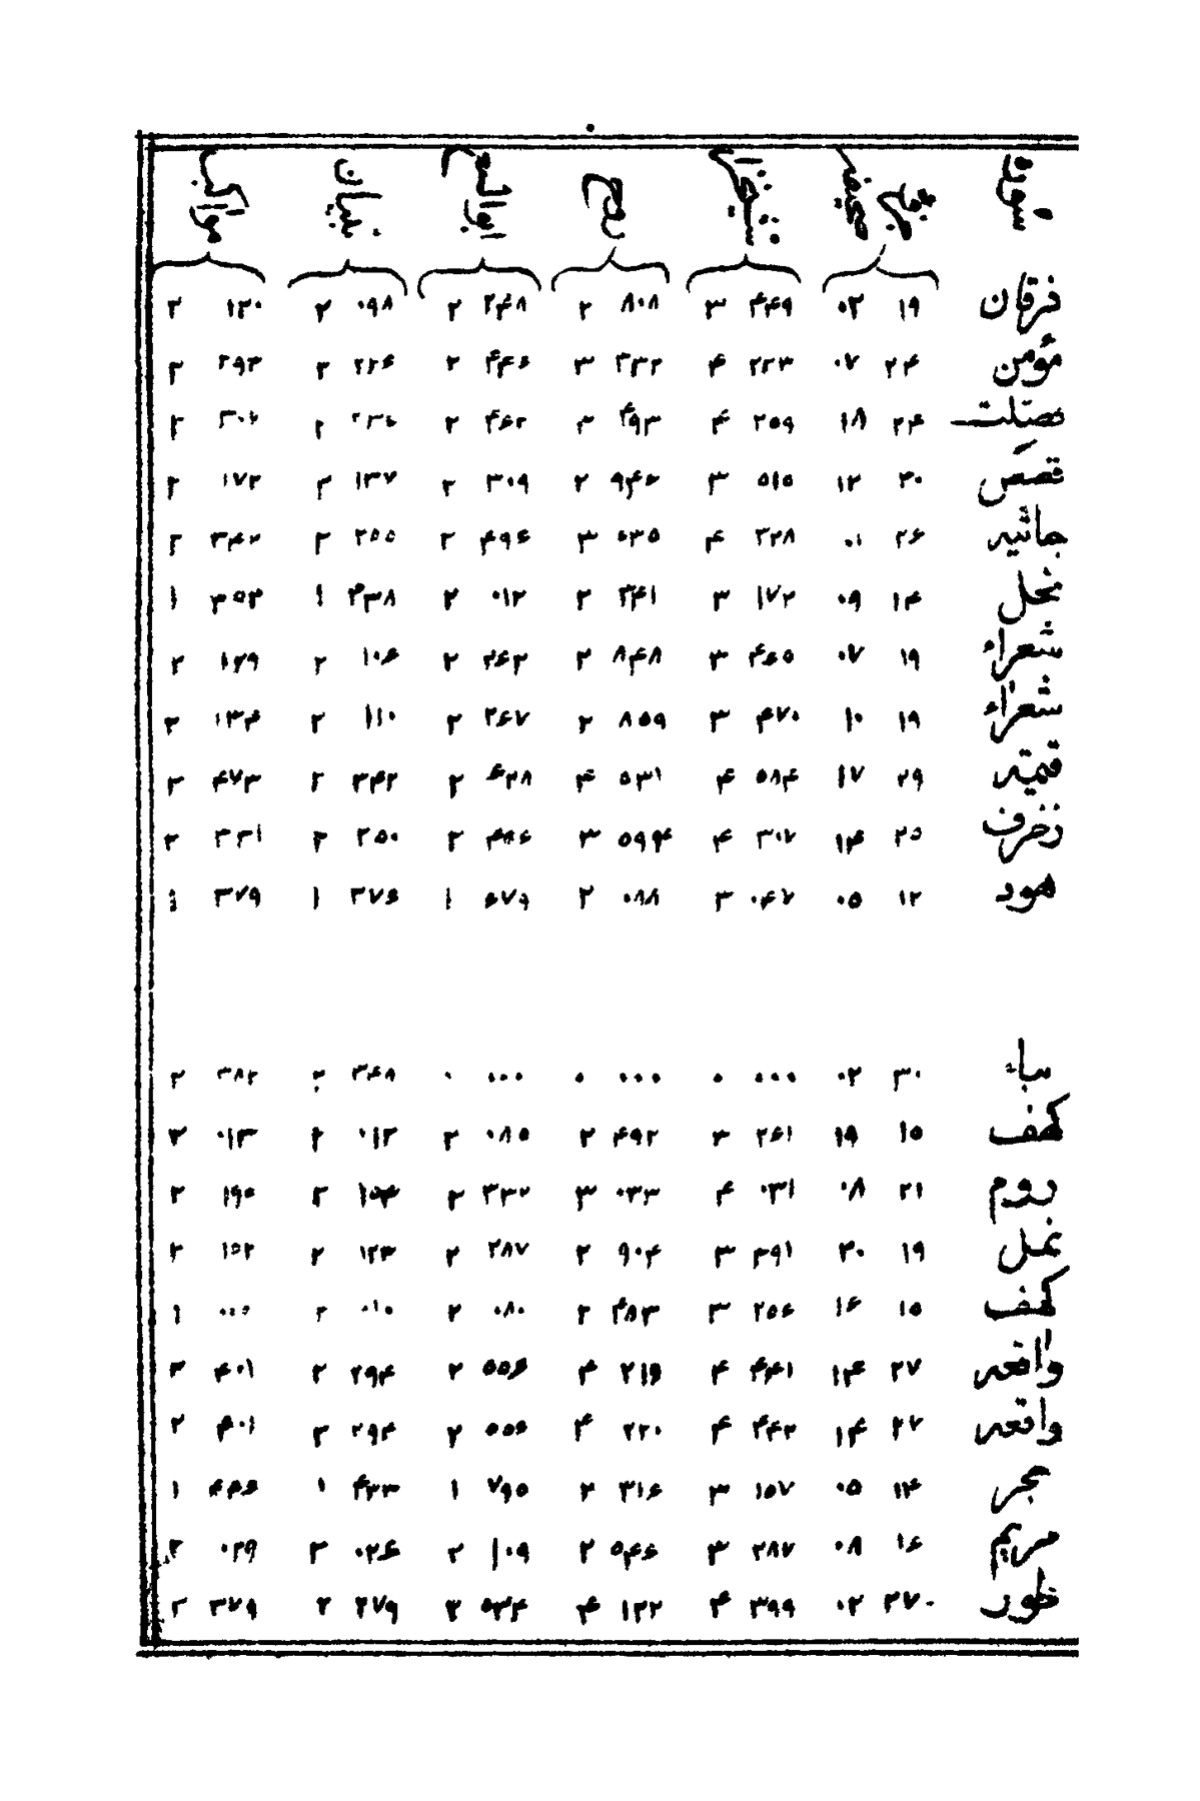 سوره جزء صفحه روح تبیان
فرقان ۱۹ ۰۲ ۴۴۹ ۳ ۸۰۸ ۲ ۲۴۸ ۲ ۰۹۸ ۲ ۱۲۰ ۲
مؤمن ۲۴ ۰۷ ۲۲۳ ۴ ۳۳۲ ۳ ۴۴۶ ۲ ۲۲۶ ۲ ۲۹۳ ۲
۲۴ ۱۸ ۲۵۹ ۴ ۴۹۳ ۳ ۴۶۲ ۲ ۲ ۲
قصص ۲۰ ۱۲ ۵۱۵ ۳ ۹۴۶ ۲ ۳۰۹ ۲ ۱۳۷ ۲ ۱۷۲ ۲
جاثیه ۲۶ ۰۱ ۳۲۸ ۴ ۶۳۵ ۳ ۴۹۶ ۲ ۲۵۵ ۲ ۳۴۲ ۲
نحل ۱۴ ۰۹ ۱۷۲ ۳ ۳۴۱ ۲ ۰۱۲ ۲ ۳۳۸ ۱ ۳۵۳ ۱
شعراء ۱۹ ۰۷ ۴۶۵ ۳ ۸۴۸ ۲ ۲۶۲ ۲ ۱۰۶ ۲ ۱۲۹ ۲
شعراء ۱۹ ۱۰ ۴۷۰ ۳ ۸۵۹ ۲ ۲۶۷ ۲ ۱۱۰ ۲ ۱۳۴ ۲
قیمة ۲۹ ۱۷ ۵۸۴ ۴ ۵۳۱ ۴ ۶۲۸ ۲ ۳۴۲ ۲ ۴۷۳ ۲
زخرف ۲۵ ۱۴ ۳۰۷ ۴ ۵۹۹۴ ۳ ۴۸۶ ۲ ۲۵۰ ۲ ۳۳۱ ۲
هود ۱۲ ۰۵ ۰۴۷ ۳ ۰۸۸ ۲ ۶۷۹ ۱ ۳۷۶ ۱ ۳۷۹ ۱
سباء ۳۰ ۰۲ ۰۰۰ ۰ ۰۰۰ ۰ ۰۰۰ ۰ ۳۶۸ ۲ ۳۸۲ ۲
کهف ۱۵ ۱۹ ۲۶۱ ۳ ۴۹۲ ۲ ۰۸۵ ۲ ۰۱۲ ۲ ۰۱۳
روم ۲۱ ۰۸ ۰۳۱ ۴ ۰۳۳ ۳ ۳۳۲ ۲ ۱۵۴ ۲ ۱۹۵ ۲
نمل ۱۹ ۲۰ ۳۹۱ ۳ ۹۰۴ ۲ ۲۸۷ ۲ ۱۲۳ ۲ ۱۵۲ ۲
کهف ۱۵ ۱۶ ۲۵۶ ۳ ۴۸۳ ۲ ۰۸۰ ۲ ۰۱۰ ۲ ۱
واقعه ۲۷ ۱۴ ۴۴۱ ۴ ۲۱۹ ۴ ۵۵۶ ۲ ۲۹۴ ۲ ۴۰۱ ۲
واقعه ۲۷ ۱۴ ۴۴۲ ۴ ۲۲۰ ۴ ۵۵۶ ۲ ۲۹۴ ۲ ۴۰۱ ۲
حجر ۱۴ ۰۵ ۱۵۷ ۳ ۳۱۶ ۲ ۷۹۵ ۱ ۴۲۳ ۱ ۴۴۶ ۱
مریم ۱۶ ۰۸ ۲۸۷ ۳ ۵۴۶ ۲ ۱۰۹ ۲ ۰۲۶ ۲ ۰۲۹ ۲
طور ۲۷۰ ۰۲ ۳۹۹ ۴ ۱۲۲ ۴ ۵۳۴ ۲ ۲۷۹ ۲ ۳۷۹ ۲